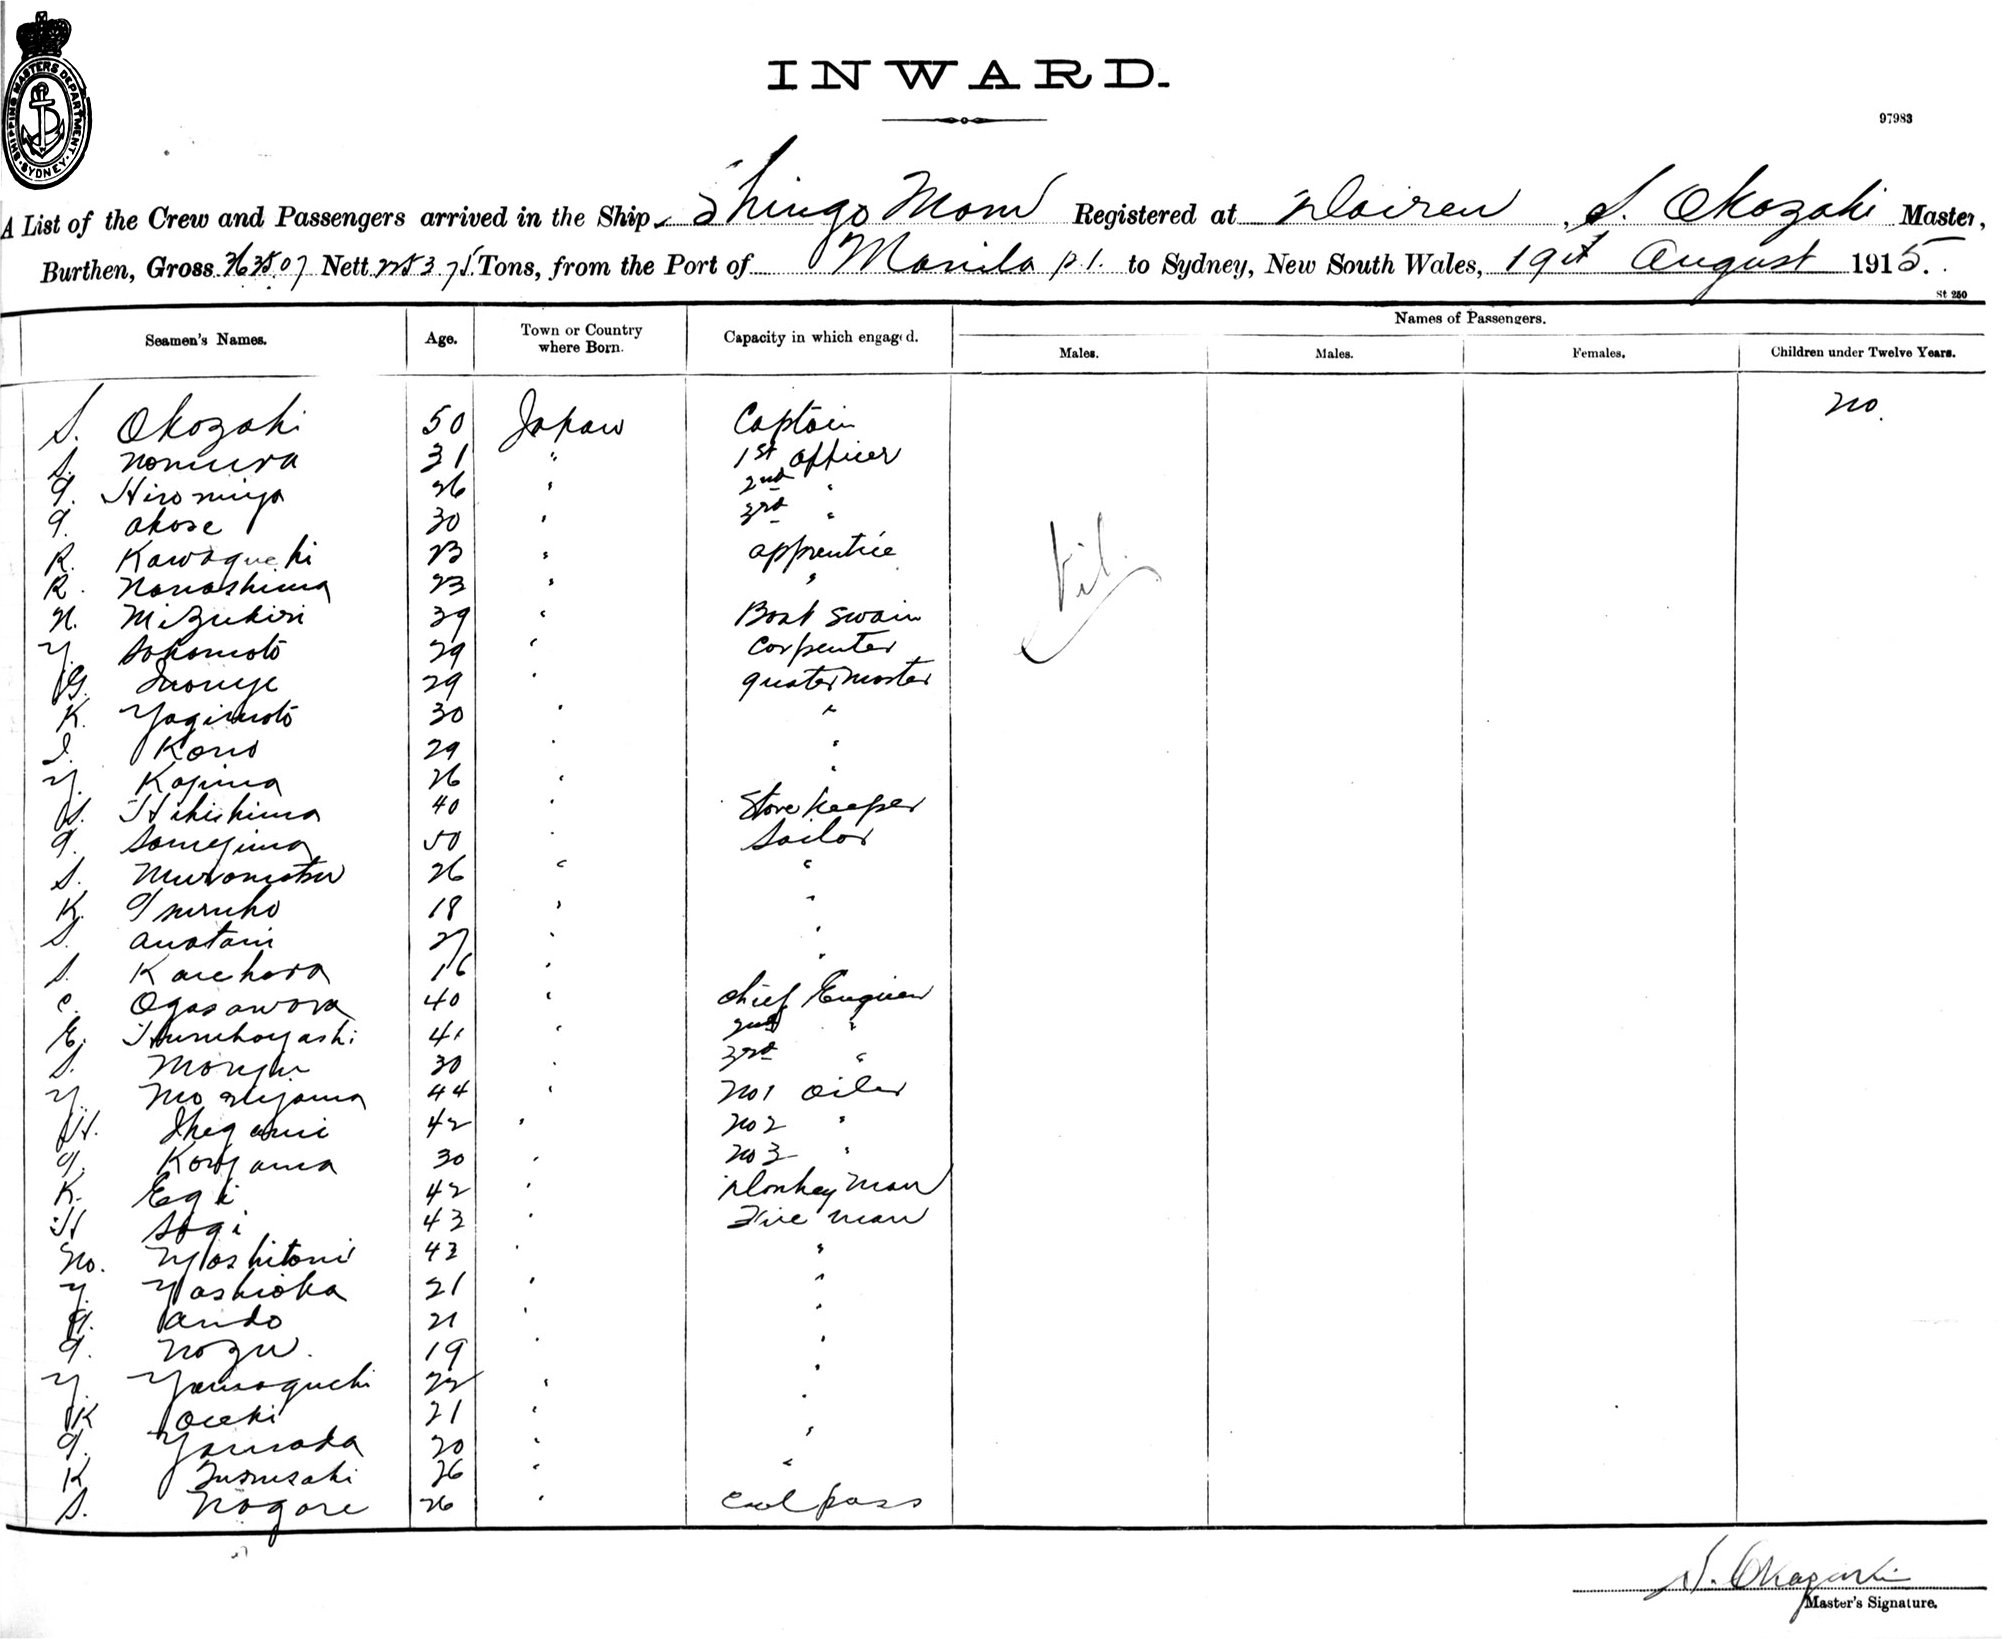 SHIPPING MASTERS DEPARTMENT · SYDNEY ·
INWARD.
97983
A List of the Crew and Passengers arrived in the Ship Shingo Maru Registered at Dairen, S. Okazaki Master,
Burthen, Gross Nett Tons, from the Port of Manila p.1. to Sydney, New South Wales, 19th August 1915.
St 250
Seamen's Names. Age. Town or Country where Born. Capacity in which engaged. Names of Passengers.
Males. Males. Females. Children under Twelve Years.
S. Okazaki 50 Japan Captain no.
S. Nomura 31 " 1st officer
T. Hiromiya 26 " 2nd "
T. Akase 30 " 3rd "
R. Kawaguchi 23 " apprentice Nil.
R. Nanashima 23 " "
N. Mizukiri 39 " Boat swain
Y. Sakamoto 29 " Carpenter
G. Inouye 29 " quatermaster
K. Yagimoto 30 " "
I. Kono 29 " "
Y. Kojima 26 " "
S. Hikishima 40 " Store keeper
T. Samejima 50 " Sailor
S. Muramatsu 26 " "
K. Tsuruho 18 " "
S. Anatani 27 " "
S. 16 " "
C. Ogasawara 40 " Chief Engineer
E. 41 " 2nd "
S. 30 " 3rd "
Y. Moriyama 44 " No 1 oiler
H. Ikegami 42 " No 2 "
T. Koyama 30 " No 3 "
K. Egi 42 " Donkey man
H Sogi 43 " Fire man
No. Yoshitomi 43 " "
Y. Yoshioka 21 " "
T. Ando 21 " "
T. Nozu. 19 " "
Y. Yamaguchi 22 " "
K Oceki 21 " "
T. Yamada 20 " "
K 26 " "
S. Nagare 26 " Coal pass
S. Okazaki
Master's Signature.